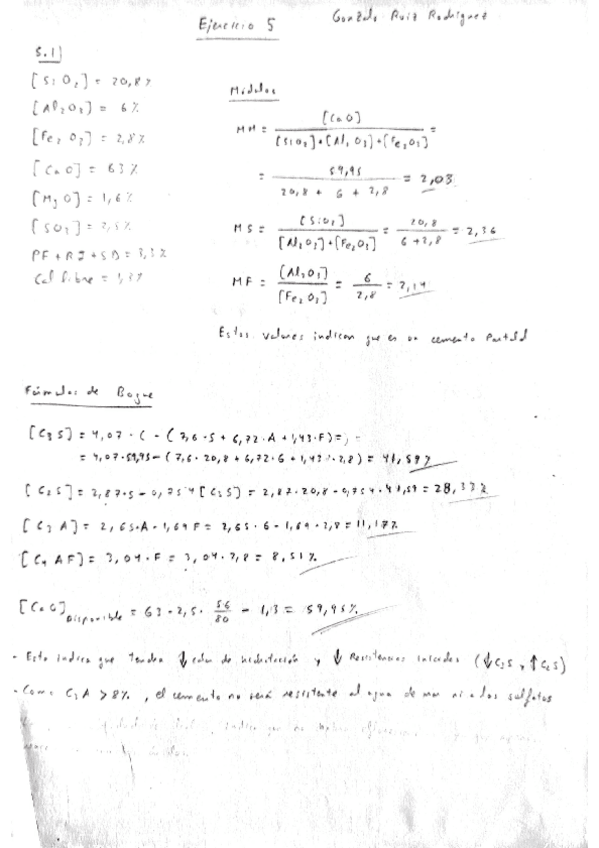 Ejercicio 5
Gonzalo Ruiz Rodríguez
5.1)
[SiO2] = 20,8%
[Al2O3] = 6%
[Fe2O3] = 2,8%
[CaO] = 63%
[MgO] = 1,6%
[SO3] = 2,5%
PF + RI + SD = 3,3%
Cal libre = 1,3%
Módulos
MH = [CaO] / [SiO2]+[Al2O3]+[Fe2O3] =
= 59,95 / 20,8 + 6 + 2,8 = 2,03
MS = [SiO2] / [Al2O3]+[Fe2O3] = 20,8 / 6+2,8 = 2,36
MF = [Al2O3] / [Fe2O3] = 6 / 2,8 = 2,14
Estos valores indican que es un cemento Portland
Fórmulas de Bogue
[C3S] = 4,07 · C - (7,6 · S + 6,72 · A + 1,43 · F) =
= 4,07 · 59,95 - (7,6 · 20,8 + 6,72 · 6 + 1,43 · 2,8) = 41,59%
[C2S] = 2,87 · S - 0,754 [C3S] = 2,87 · 20,8 - 0,754 · 41,59 = 28,33%
[C3A] = 2,65 · A - 1,69 F = 2,65 · 6 - 1,69 · 2,8 = 11,17%
[C4AF] = 3,04 · F = 3,04 · 2,8 = 8,51%
[CaO] Disponible = 63 - 2,5 · 56/80 - 1,3 = 59,95%
- Esto indica que tendrá ↓ calor de hidratación y ↓ Resistencias iniciales (↓C3S y ↑C2S)
- Como C3A > 8%, el cemento no será resistente al agua de mar ni a los sulfatos